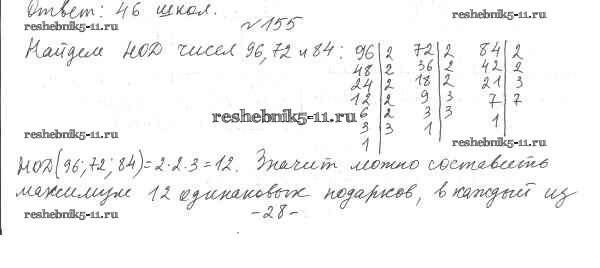 Ответ: 46 школ.
reshebnik5-11.ru reshebnik5-11.ru
№155
Найдем НОД чисел 96, 72 и 84: 96|2 72|2 84|2
48|2 36|2 42|2
24|2 18|2 21|3
12|2 9|3 7|7
6|2 3|3 1
3|3 1
1
reshebnik5-11.ru reshebnik5-11.ru reshebnik5-11.ru
НОД(96; 72; 84)=2·2·3=12. Значит можно составить
максимум 12 одинаковых подарков, в каждый из
reshebnik5-11.ru -28- reshebnik5-11.ru